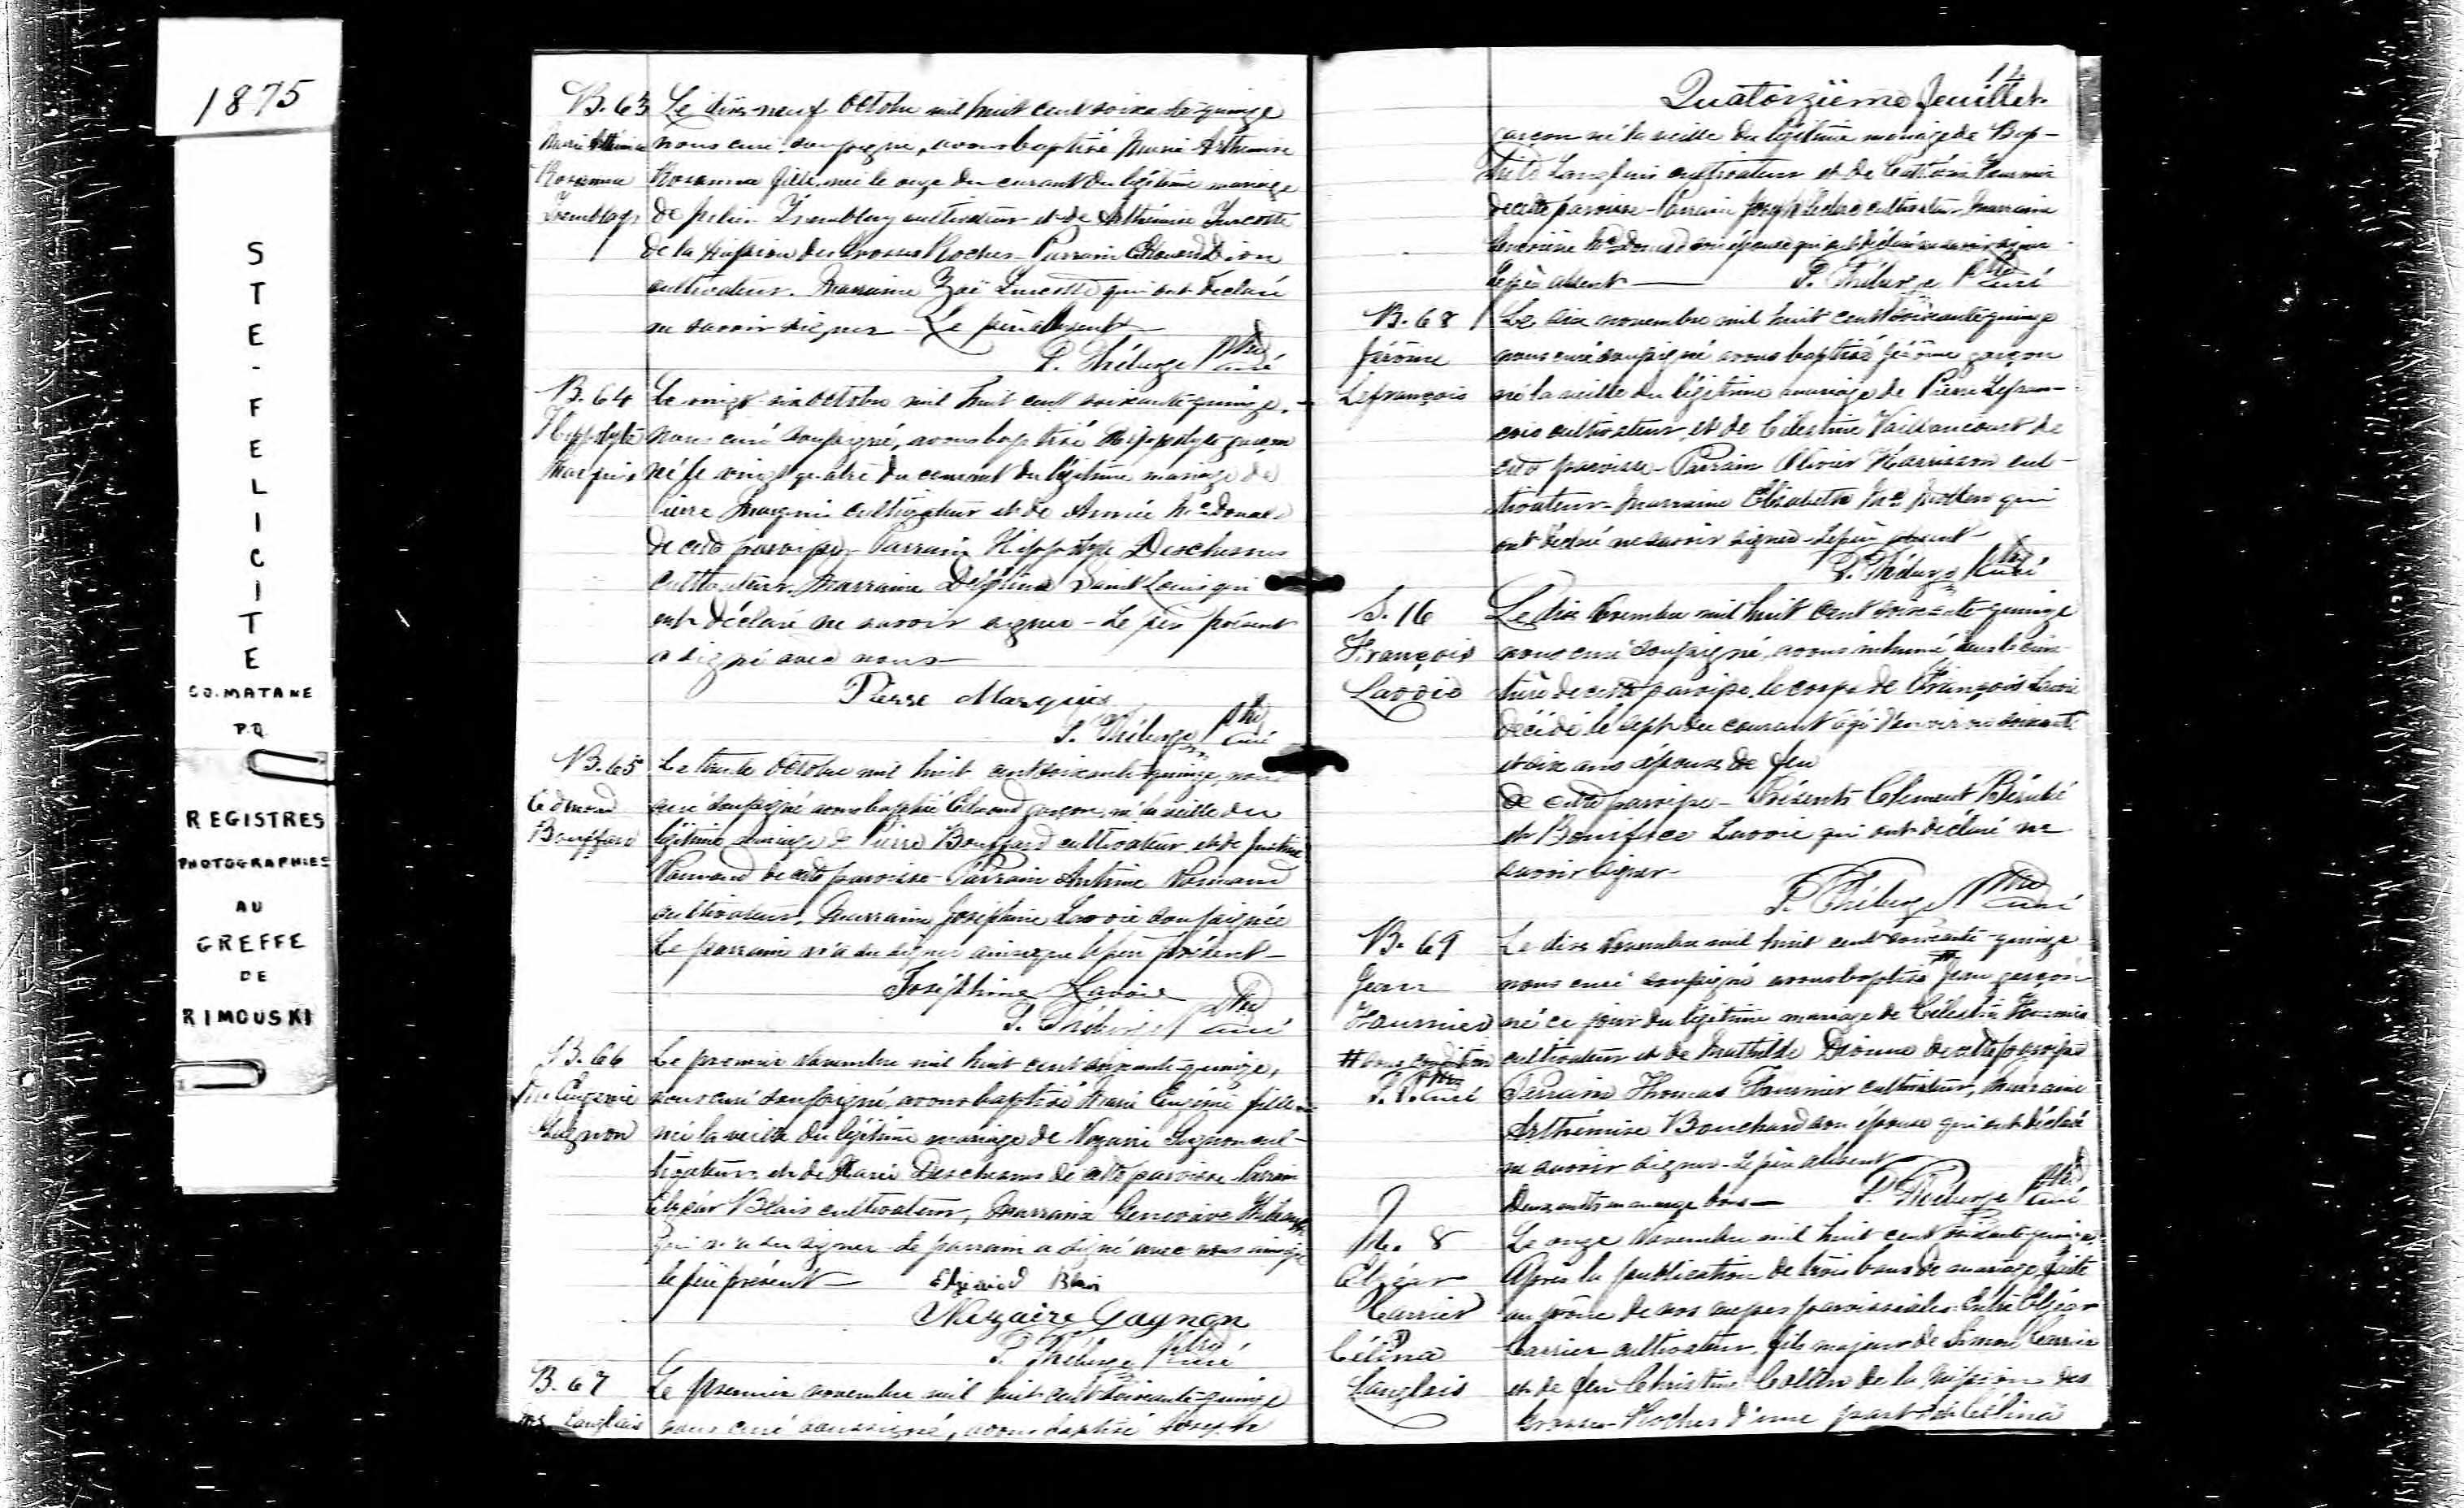 1875
STE-FELICITE
CO. MATANE
P.Q.
REGISTRES
PHOTOGRAPHIES
AU
GREFFE
DE
RIMOUSKI
B. 63
Marie Arthémise
Rosanna
Tremblay
Le dix-neuf Octobre mil huit cent soixante-quinze
nous curé soussigné, avons baptisé Marie Arthémise
Rosanna fille, née le onze du courant du légitime mariage
de Tremblay cultivateur et de Arthémise Turcotte
de la Mission des Grosses Roches - Parrain Edouard Dion
cultivateur. Marraine Zoé Turcotte qui ont déclaré
ne savoir signer - Le père absent
P. Théberge Ptre curé
B. 64
Hippolyte
Marquis
Le vingt-six Octobre mil huit cent soixante-quinze,
nous curé soussigné, avons baptisé Hippolyte garçon
né le vingt quatre du courant du légitime mariage de
Pierre Marquis cultivateur et de Aimée McDonald
de cette paroisse - Parrain Hippolyte Deschesnes
cultivateur. Marraine Delphine Saint Louis qui
ont déclaré ne savoir signer - Le père présent
a signé avec nous
Pierre Marquis
P. Théberge Ptre curé
B. 65
Edmond
Bouffard
Le trente Octobre mil huit cent soixante-quinze, nous
curé soussigné avons baptisé Edmond garçon, né la veille du
légitime mariage de Pierre Bouffard cultivateur et de Justine
de cette paroisse - Parrain Antoine
cultivateur, Marraine Joséphine Lavoie soussignée
Le parrain n'a su signer ainsi que le père présent -
Joséphine Lavoie
P. Théberge Ptre curé
B. 66
Mie Eugenie
Gagnon
Le premier Novembre mil huit cent soixante-quinze,
nous curé soussigné, avons baptisé Marie Eugénie fille
née la veille du légitime mariage de Nazaire Gagnon cul-
tivateur et de Marie Deschesnes de cette paroisse - Parrain
Elzéar Blais cultivateur, Marraine Geneviève
qui n'a su signer - Le parrain a signé avec nous ainsi que
le père présent - Blais
Nazaire Gagnon
P. Théberge Ptre curé
B. 67
Jos. Langlais
Le premier novembre mil huit cent soixante-quinze
nous curé soussigné, avons baptisé Joseph
14
Quatorzième feuillet
garçon né la veille du légitime mariage de Bap-
tiste Langlais cultivateur et de Fournier
de cette paroisse - Parrain Joseph Leclerc cultivateur Marraine
Geneviève McDonald son épouse qui ont déclaré ne savoir signer
Le père absent - P. Théberge Ptre curé
B. 68
Jérôme
Lefrançois
Le six novembre mil huit cent soixante-quinze
nous curé soussigné avons baptisé Jérôme garçon
né la veille du légitime mariage de Pierre Lefran-
çois cultivateur, et de Célestine Vaillancourt de
cette paroisse - Parrain Olivier Harrisson cul-
tivateur - Marraine Elisabeth Mc qui
ont déclaré ne savoir signer - Le père absent -
P. Théberge Ptre curé
S. 16
François
Lavoie
Le dix Novembre mil huit cent soixante-quinze
nous curé soussigné, avons inhumé dans le cime-
tière de cette paroisse, le corps de François Lavoie
décédé le sept du courant âgé d'environ soixante
et dix ans époux de feu
de cette paroisse - Présents Clément Bérubé
et Boniface Lavoie qui ont déclaré ne
savoir signer -
P. Théberge Ptre curé
B. 69
Jean
Fournier
# sous condition
P. T. Ptre curé
Le dix Novembre mil huit cent soixante-quinze
nous curé soussigné avons baptisé # Jean garçon
né ce jour du légitime mariage de Célestin Fournier
cultivateur et de Mathilde Dionne de cette paroisse
Parrain Thomas Fournier cultivateur, Marraine
Arthémise Bouchard son épouse qui ont déclaré
ne savoir signer - Le père absent
Deux mots en marge bons - P. Théberge Ptre curé
M. 8
Elzéar
Carrier
&
Célina
Langlais
Le onze Novembre mil huit cent soixante-quinze,
Après la publication de trois bans de mariage faite
au prône de nos messes paroissiales Entre Elzéar
Carrier cultivateur, fils majeur de Simon Carrier
et de feu Christine de la Mission des
Grosses-Roches d'une part & de Célina